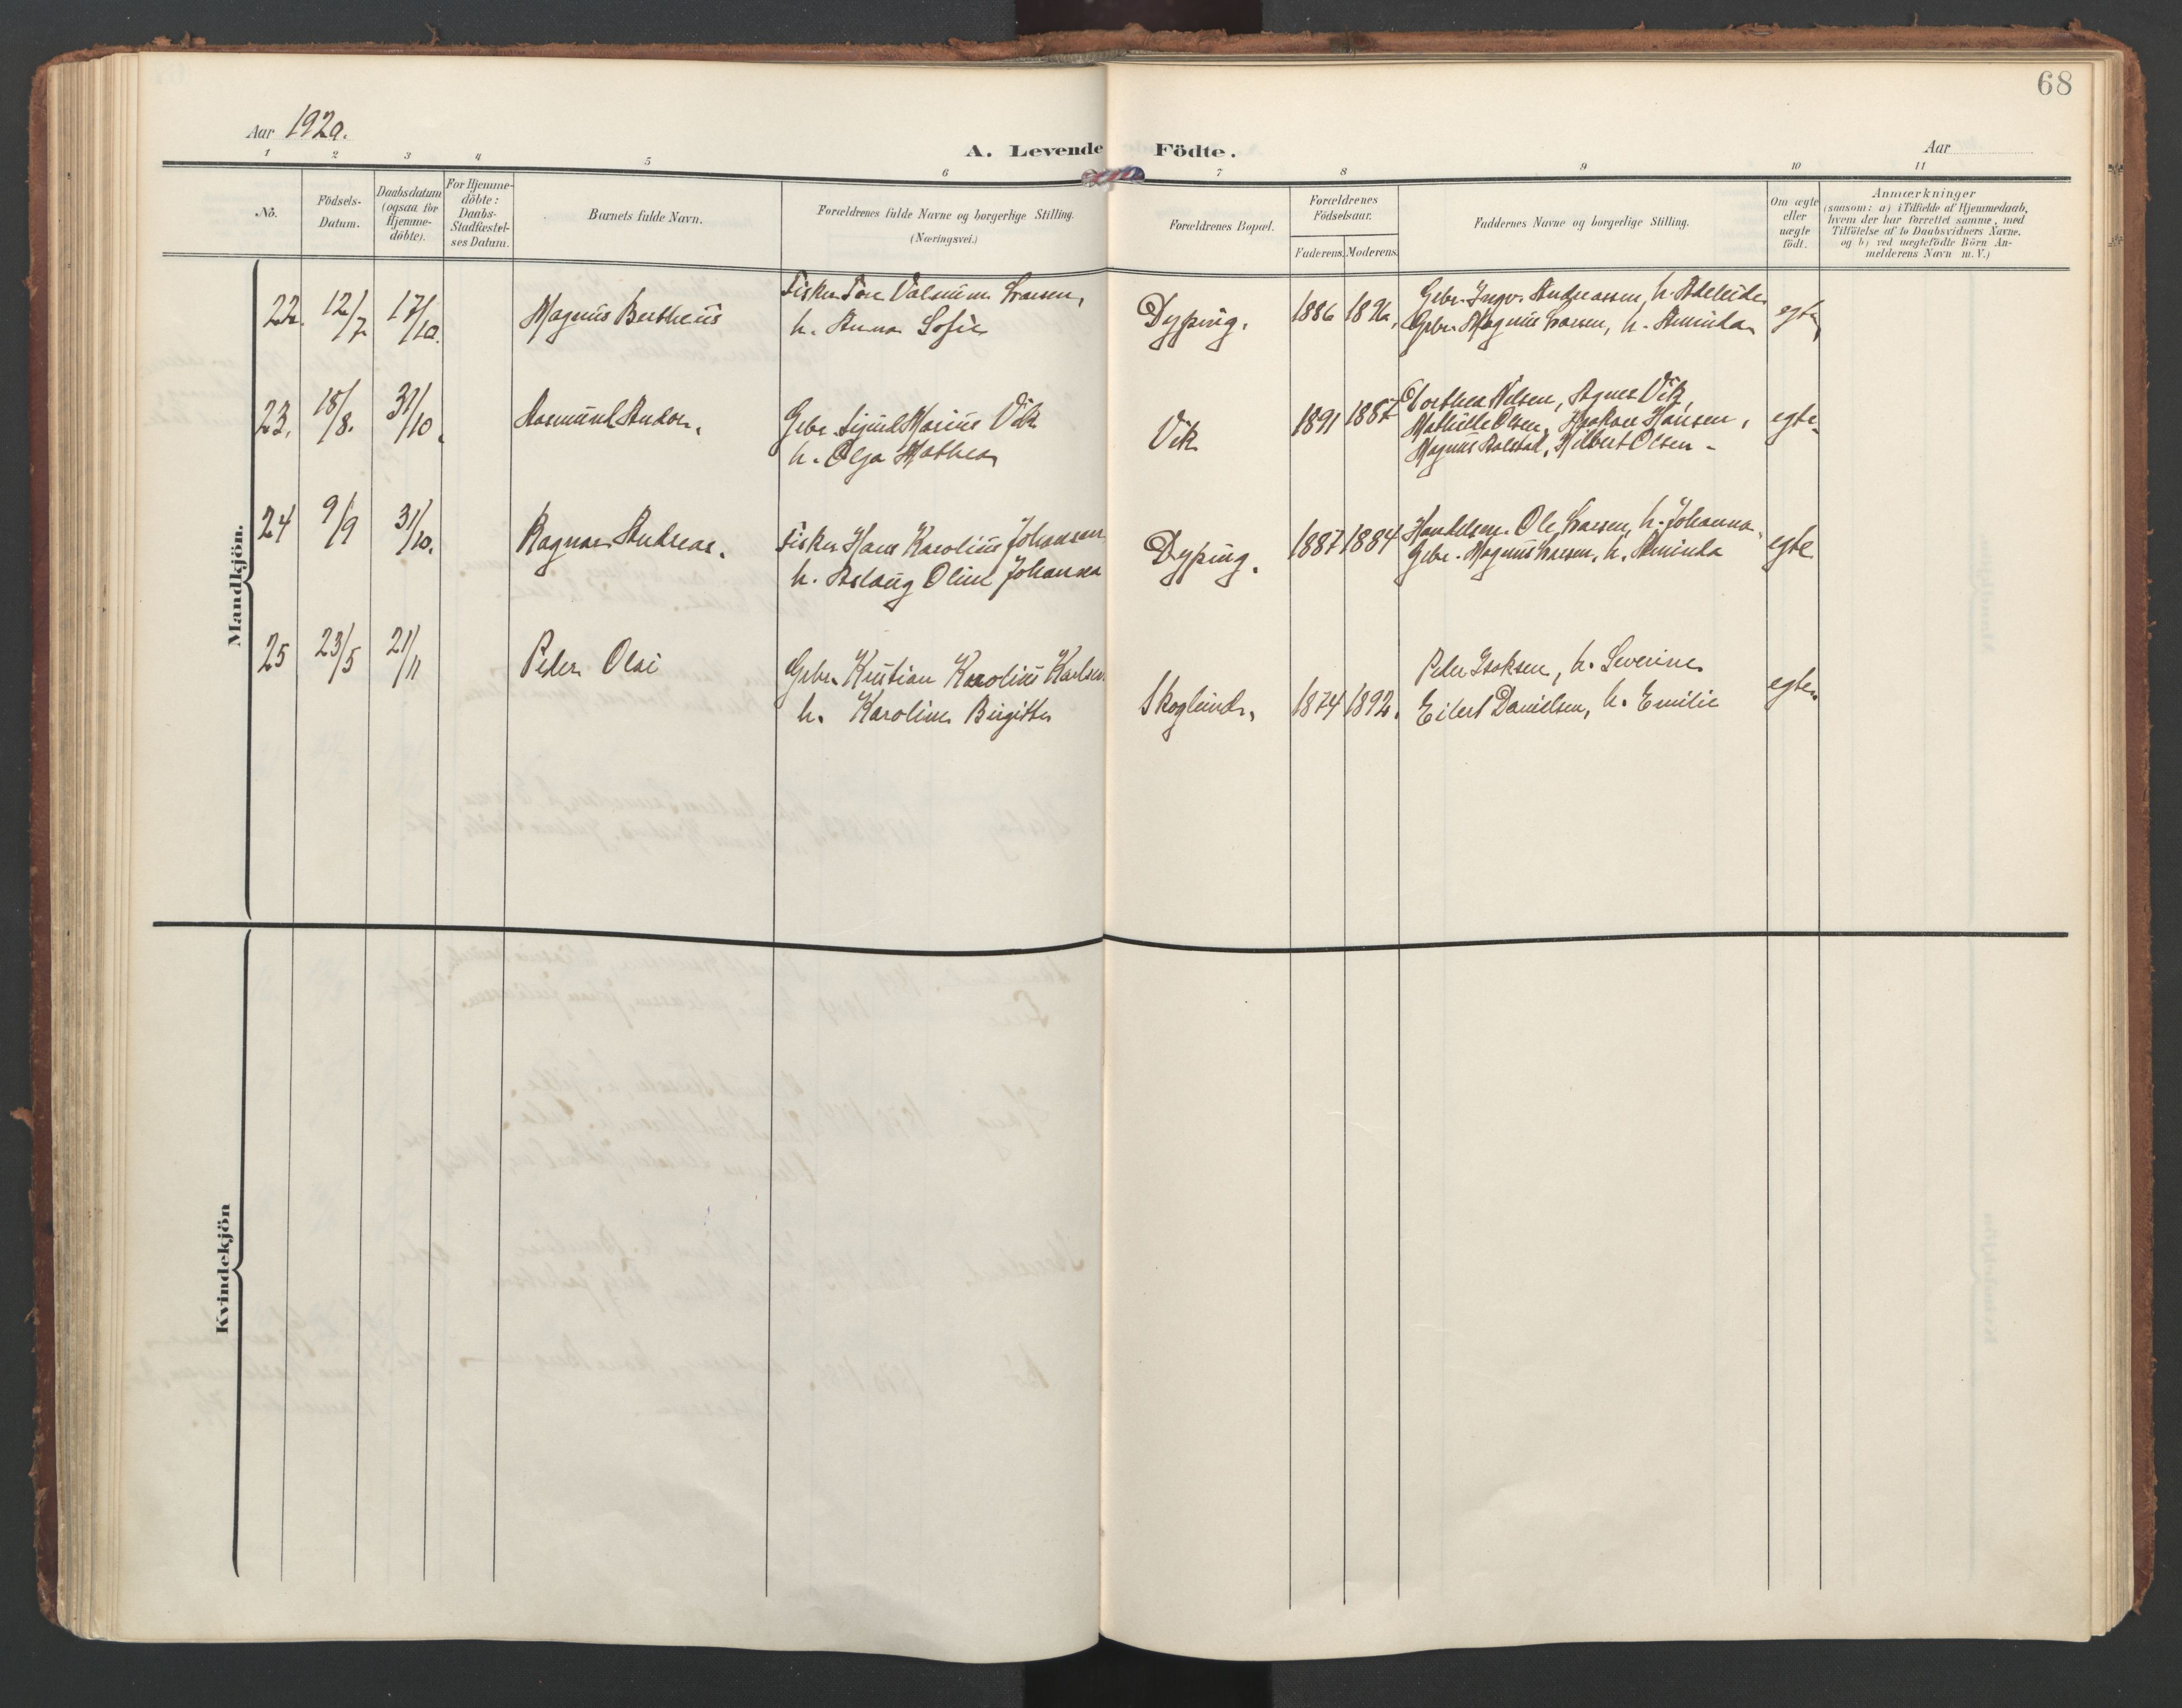 68
Aar 1920.
A. Levende Födte.
Aar
1 2 3 4 5 6 7 8 9 10 11
No.
Födsels-
Datum.
Daabsdatum
(ogsaa for
Hjemme-
döbte).
For Hjemme-
döbte:
Daabs-
Stadfæstel-
ses Datum.
Barnets fulde Navn.
Forældrenes fulde Navne og borgerlige Stilling.
(Næringsvei.)
Forældrenes Bopæl.
Forældrenes
Födselsaar.
Faderens. Moderens.
Faddernes Navne og borgerlige Stilling.
Om ægte
eller
uægte
födt.
Anmærkninger
(saasom: a) i Tilfælde af Hjemmedaab,
hvem der har forrettet samme, med
Tilföielse af to Daabsvidners Navne.
og b) ved uægtefödte Börn An-
melderens Navn m. V.)
Mandkjön.
22. 12/7 17/10. Magnus Bertheus
Fisker Tore Larsen,
h. Anna Sofie
Dyping. 1886
Gbr. Ingv. Andreassen, h. Adeleide
Gbr. Magnus Larsen, h. Aminda
egte
23. 18/8. 31/10. Aasmund Andor.
Gbr. Sigurd Marius Vik
h. Olga Mathea
Vik 1891 1887
Dorthea Nilsen, Agnes Vik,
Mathilde Olsen, Haakon Hansen,
Magnus Rolstad, Hilbert Olsen -
egte
24 9/9 31/10. Ragnar Andreas.
Fisker Hans Karolius Johansen
h. Aslaug Oline Johanna
Dyping. 1887 1884
Handelsm. Ole Larsen, h. Johanna.
Gbr. Magnus Larsen, h. Aminda
egte
25 23/5 21/11 Peder Olai
Gbr. Kristian Karolius Karlsen
h. Karoline Birgitte
Skoglund. 1874 1892.
Peder Isaksen, h. Severine
Eilert Danielsen, h. Emilie
egte
Kvindekjön